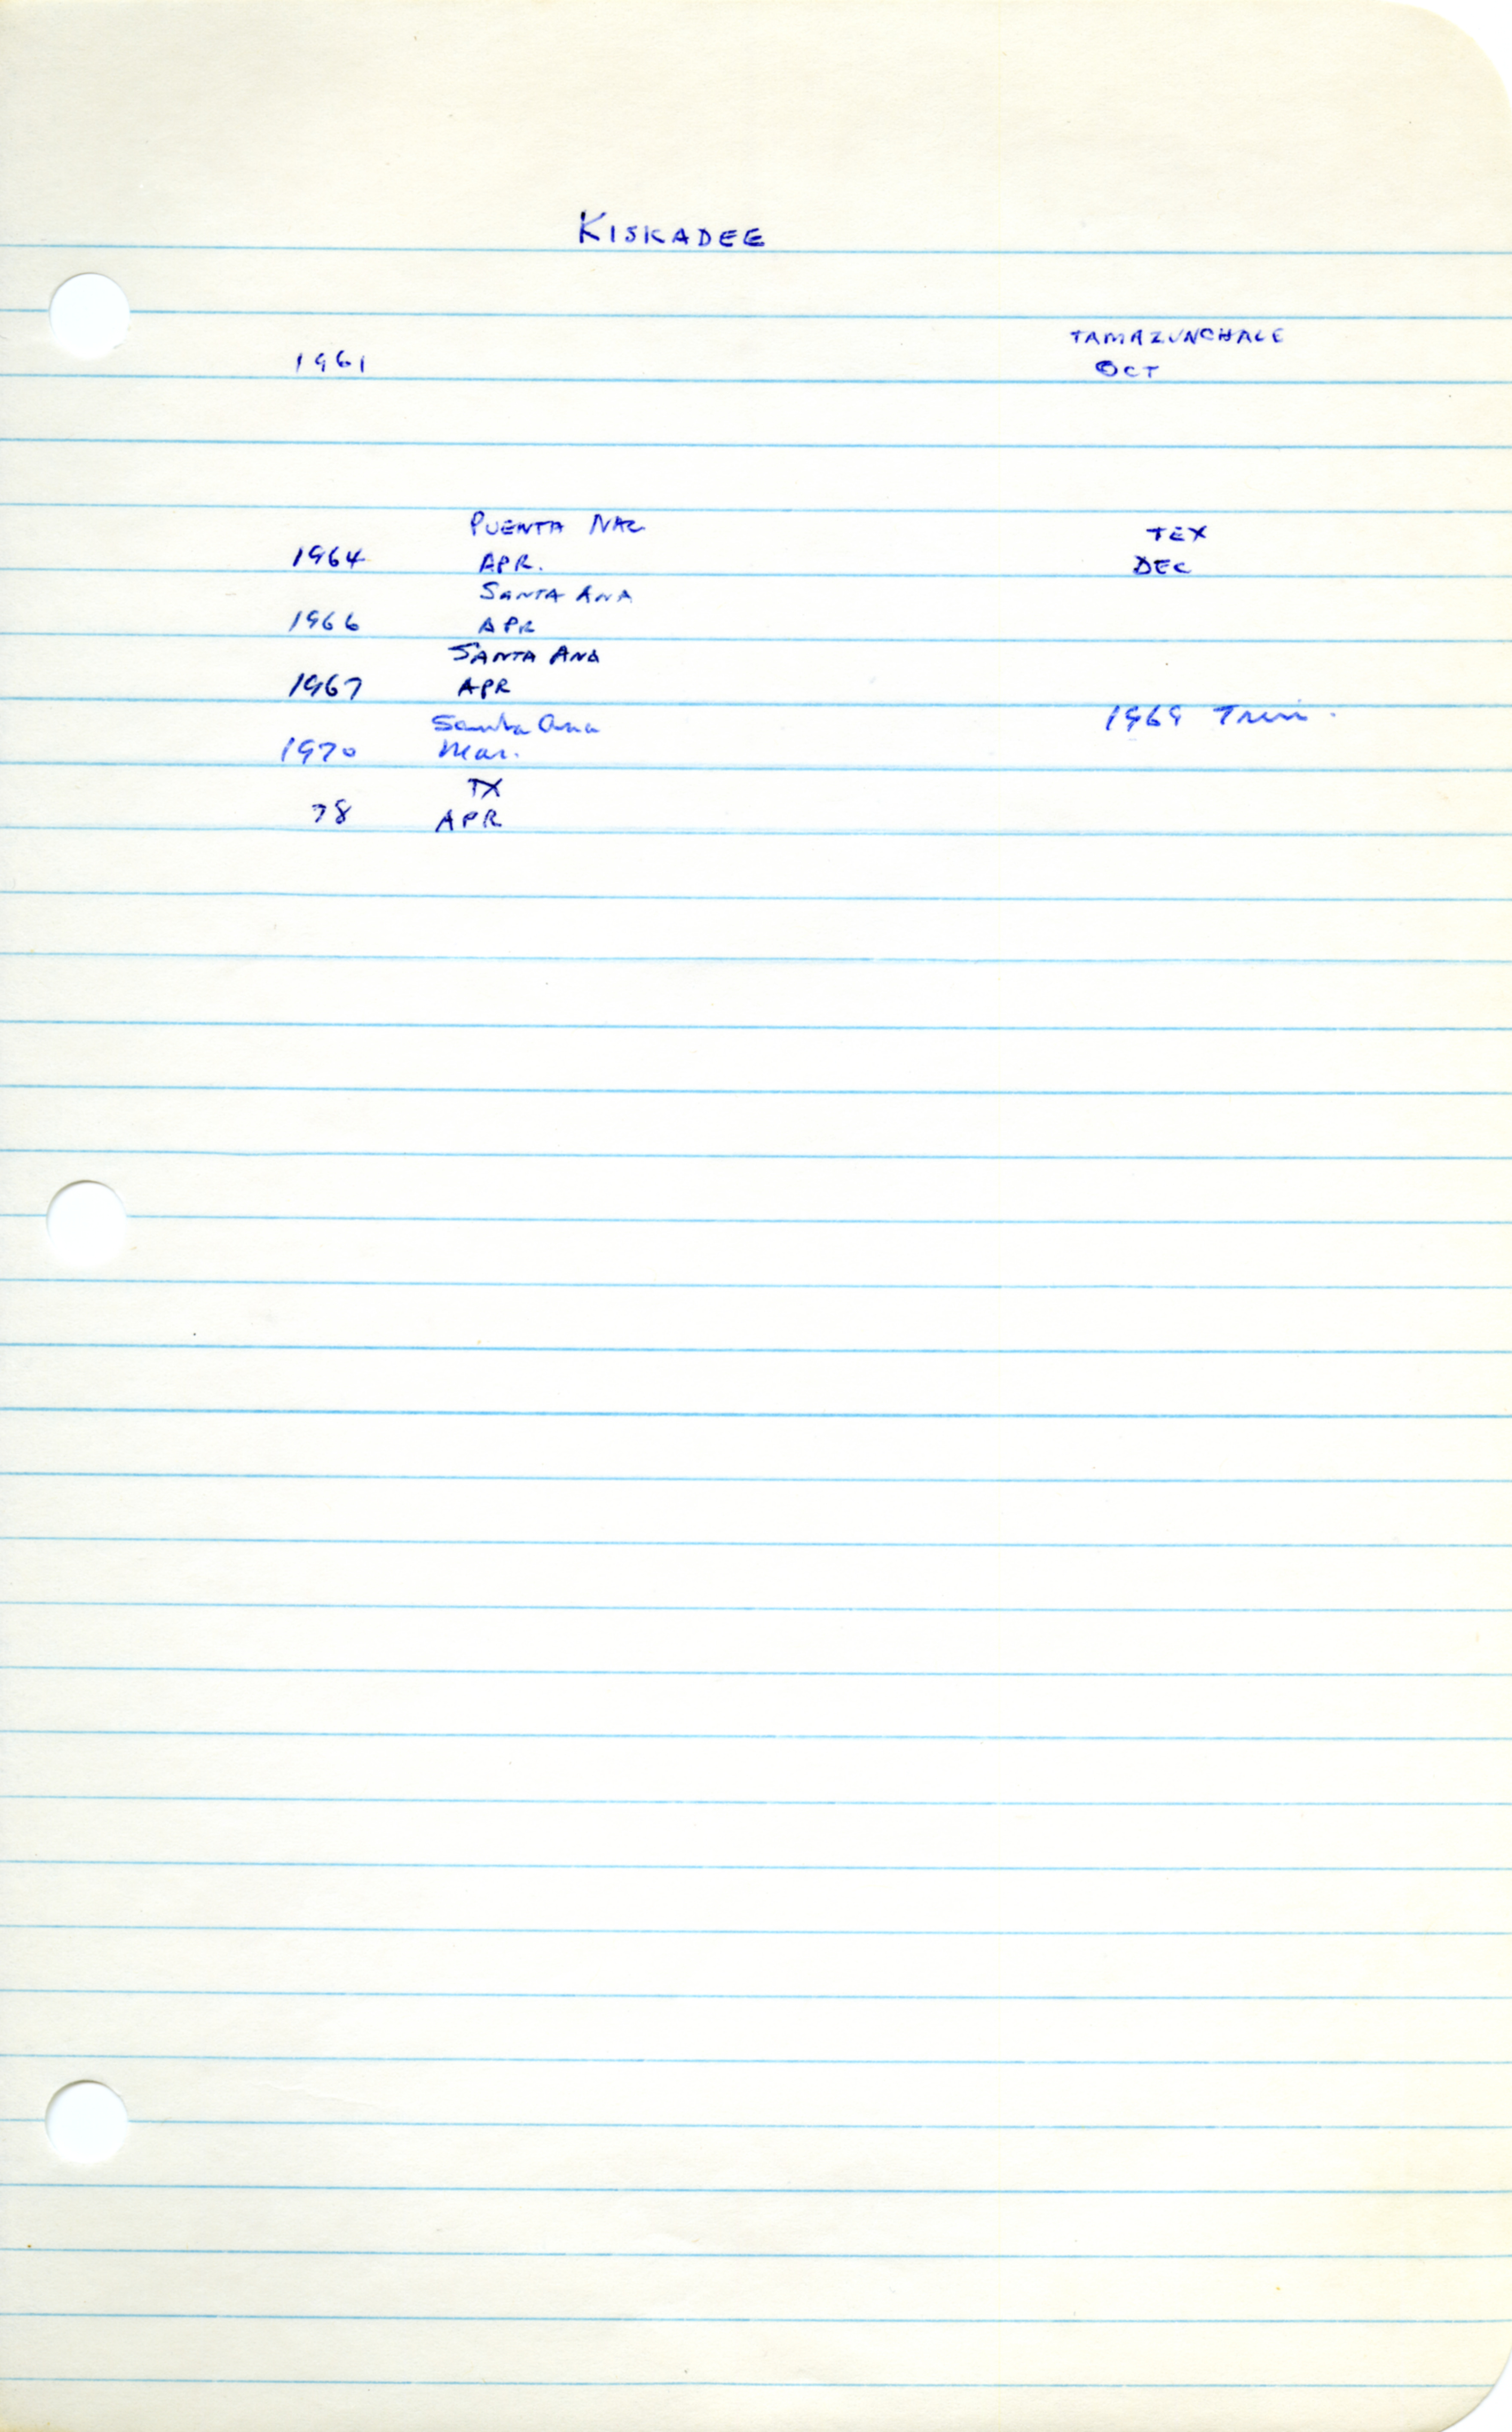 KISKADEE
TAMAZUNCHALE
1961 OCT
PUENTA NAC TEX
1964 APR. DEC
SANTA ANA
1966 APR
SANTA ANA
1967 APR
Santa Ana 1969 Trin.
1970 Mar.
TX
78 APR